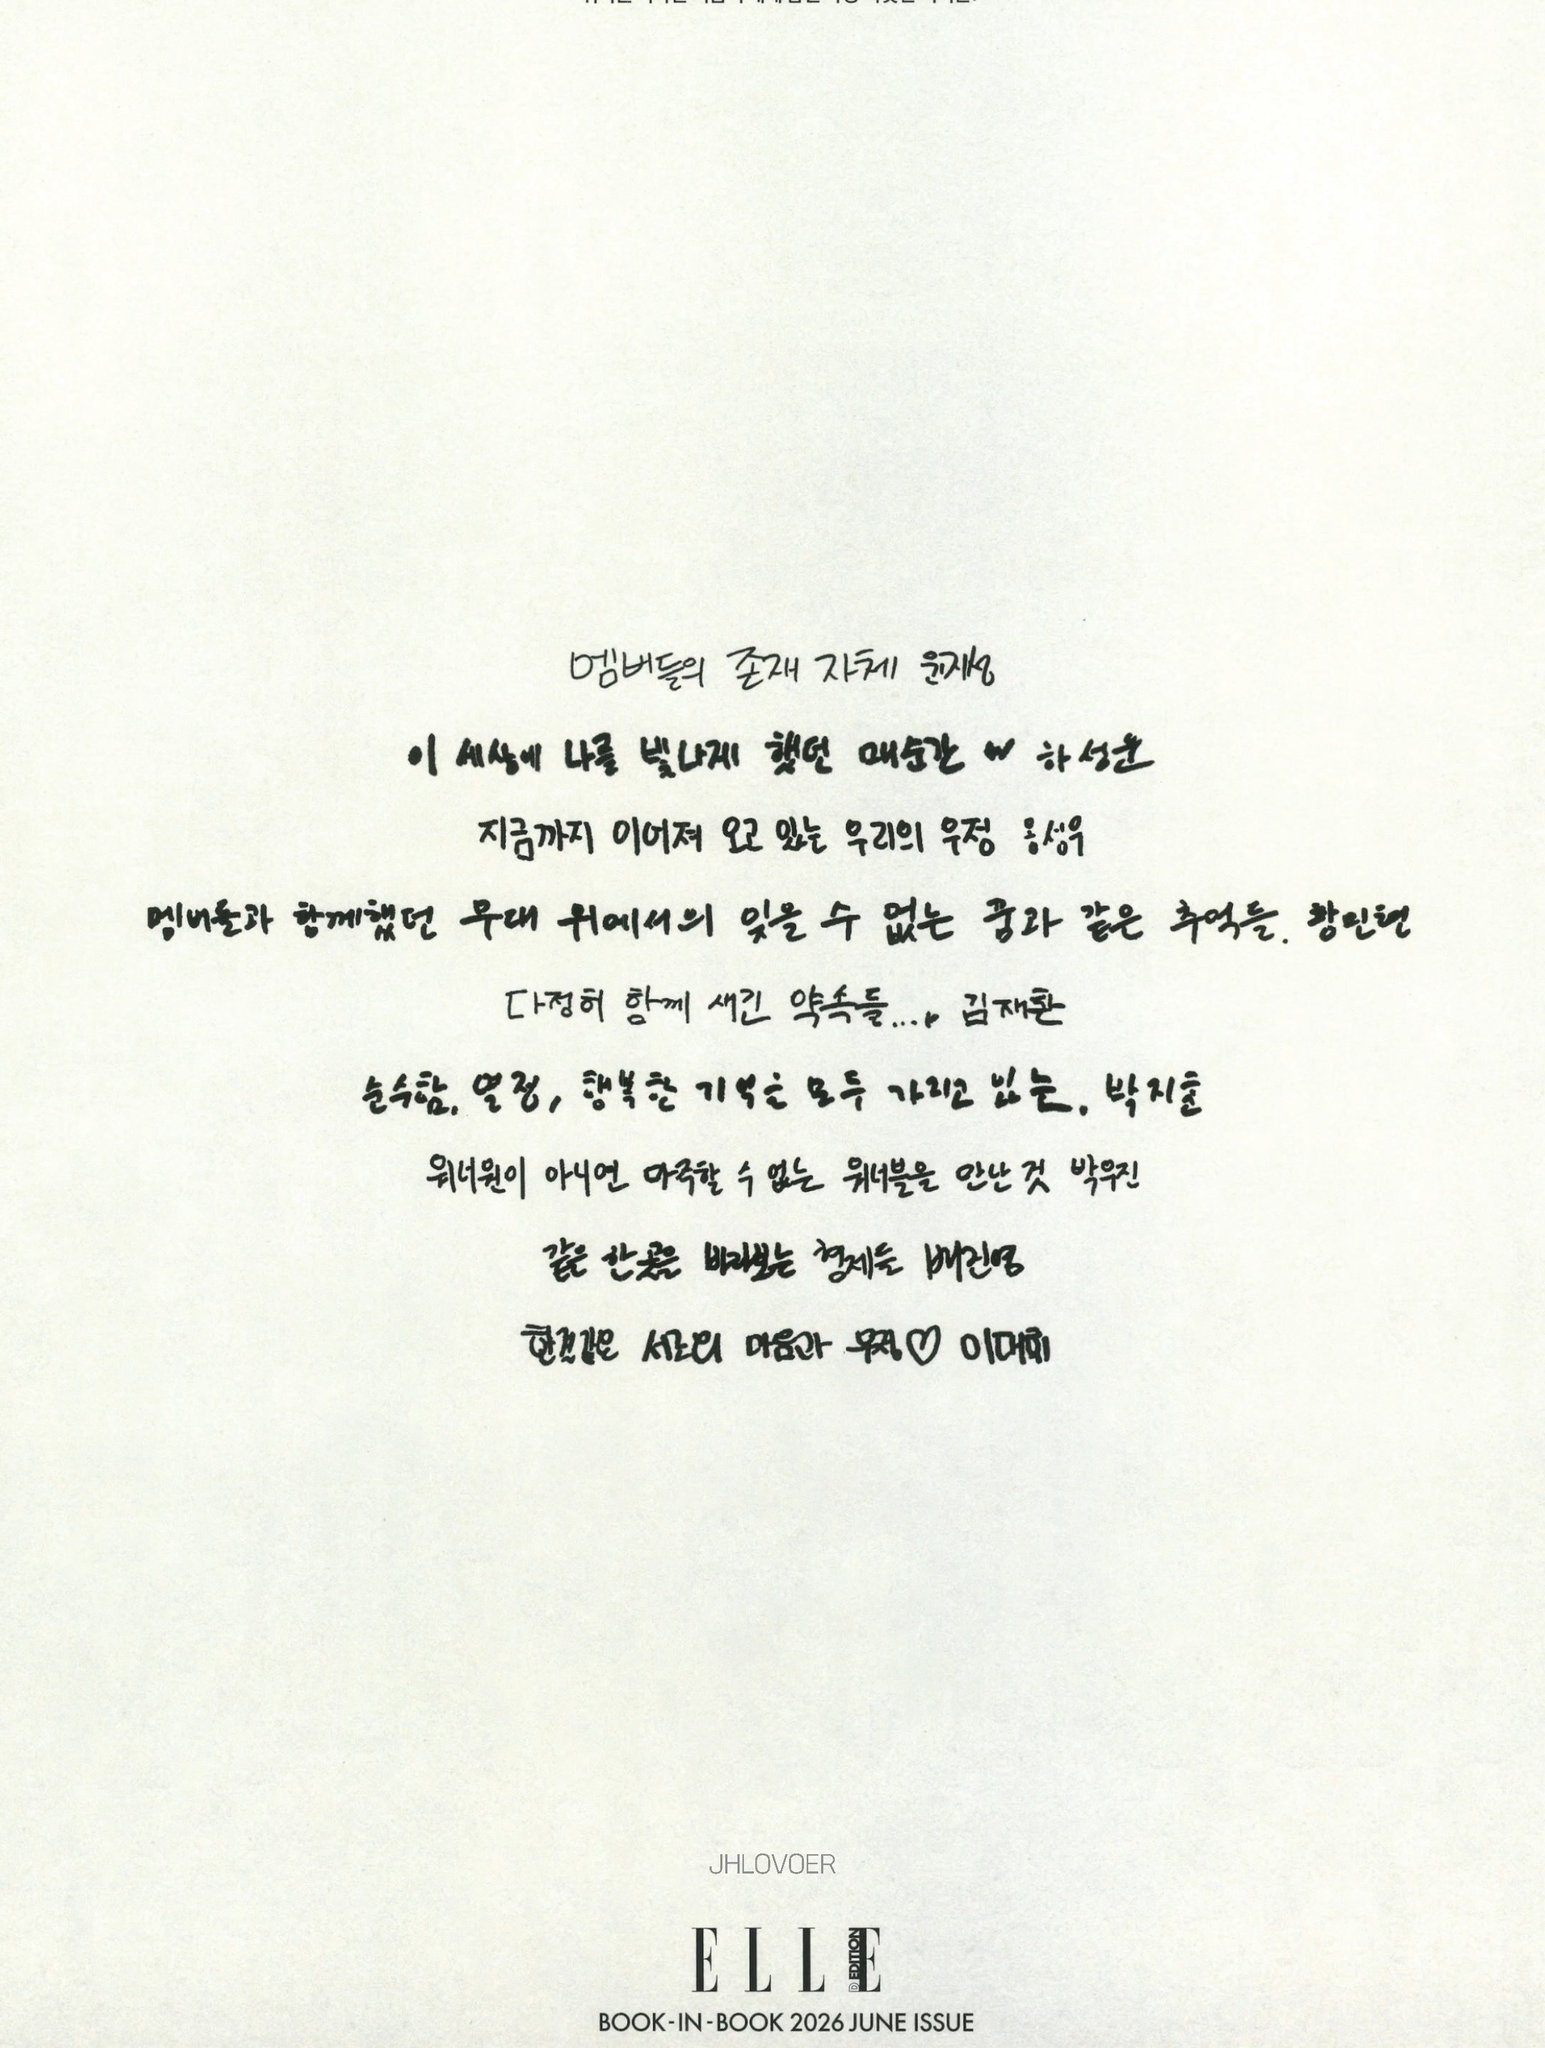 멤버들의 존재 자체 윤지성
이 세상에 나를 빛나게 했던 매순간 w 하성운
지금까지 이어져 오고 있는 우리의 우정 옹성우
멤버들과 함께했던 무대 위에서의 잊을 수 없는 꿈과 같은 추억들. 황민현
다정히 함께 새긴 약속들.... 김재환
순수함, 열정, 행복한 기억을 모두 가리고 있는. 박지훈
워너원이 아니면 마주할 수 없는 워너블을 만난 것 박우진
같은 한 곳을 바라보는 형제들 배진영
한결같은 서로의 마음과 우정♡ 이대휘
JHLOVOER
ELLE
D EDITION
BOOK-IN-BOOK 2026 JUNE ISSUE